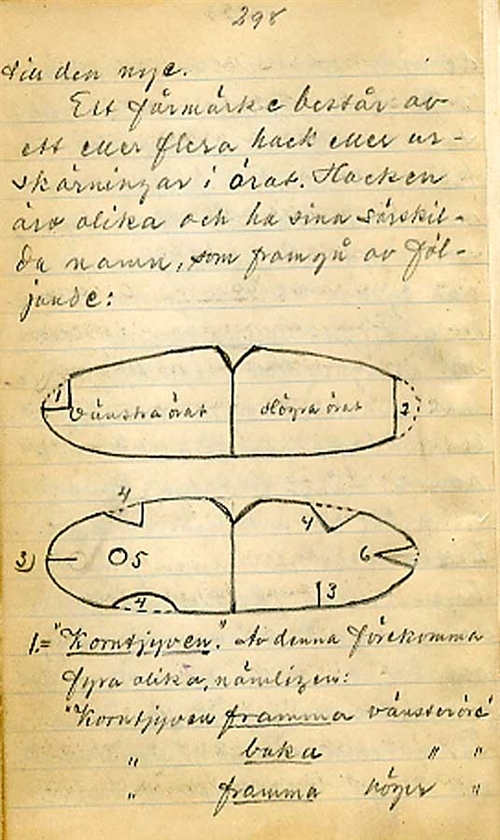 298
till den nye.
Ett fårmärke består av
ett eller flera hack eller ur-
skärningar i örat. Hacken
äro olika och ha sina särskil-
da namn, som framgå av föl-
jande:
1 Vänstra örat Högra örat 2
4 4
3) 5 6
4 3
1.= "Korntjyven". Av denna förekomma
fyra olika, nämligen:
"Korntjyven framma vänsteröre"
„ baka „ „
„ framma höger „